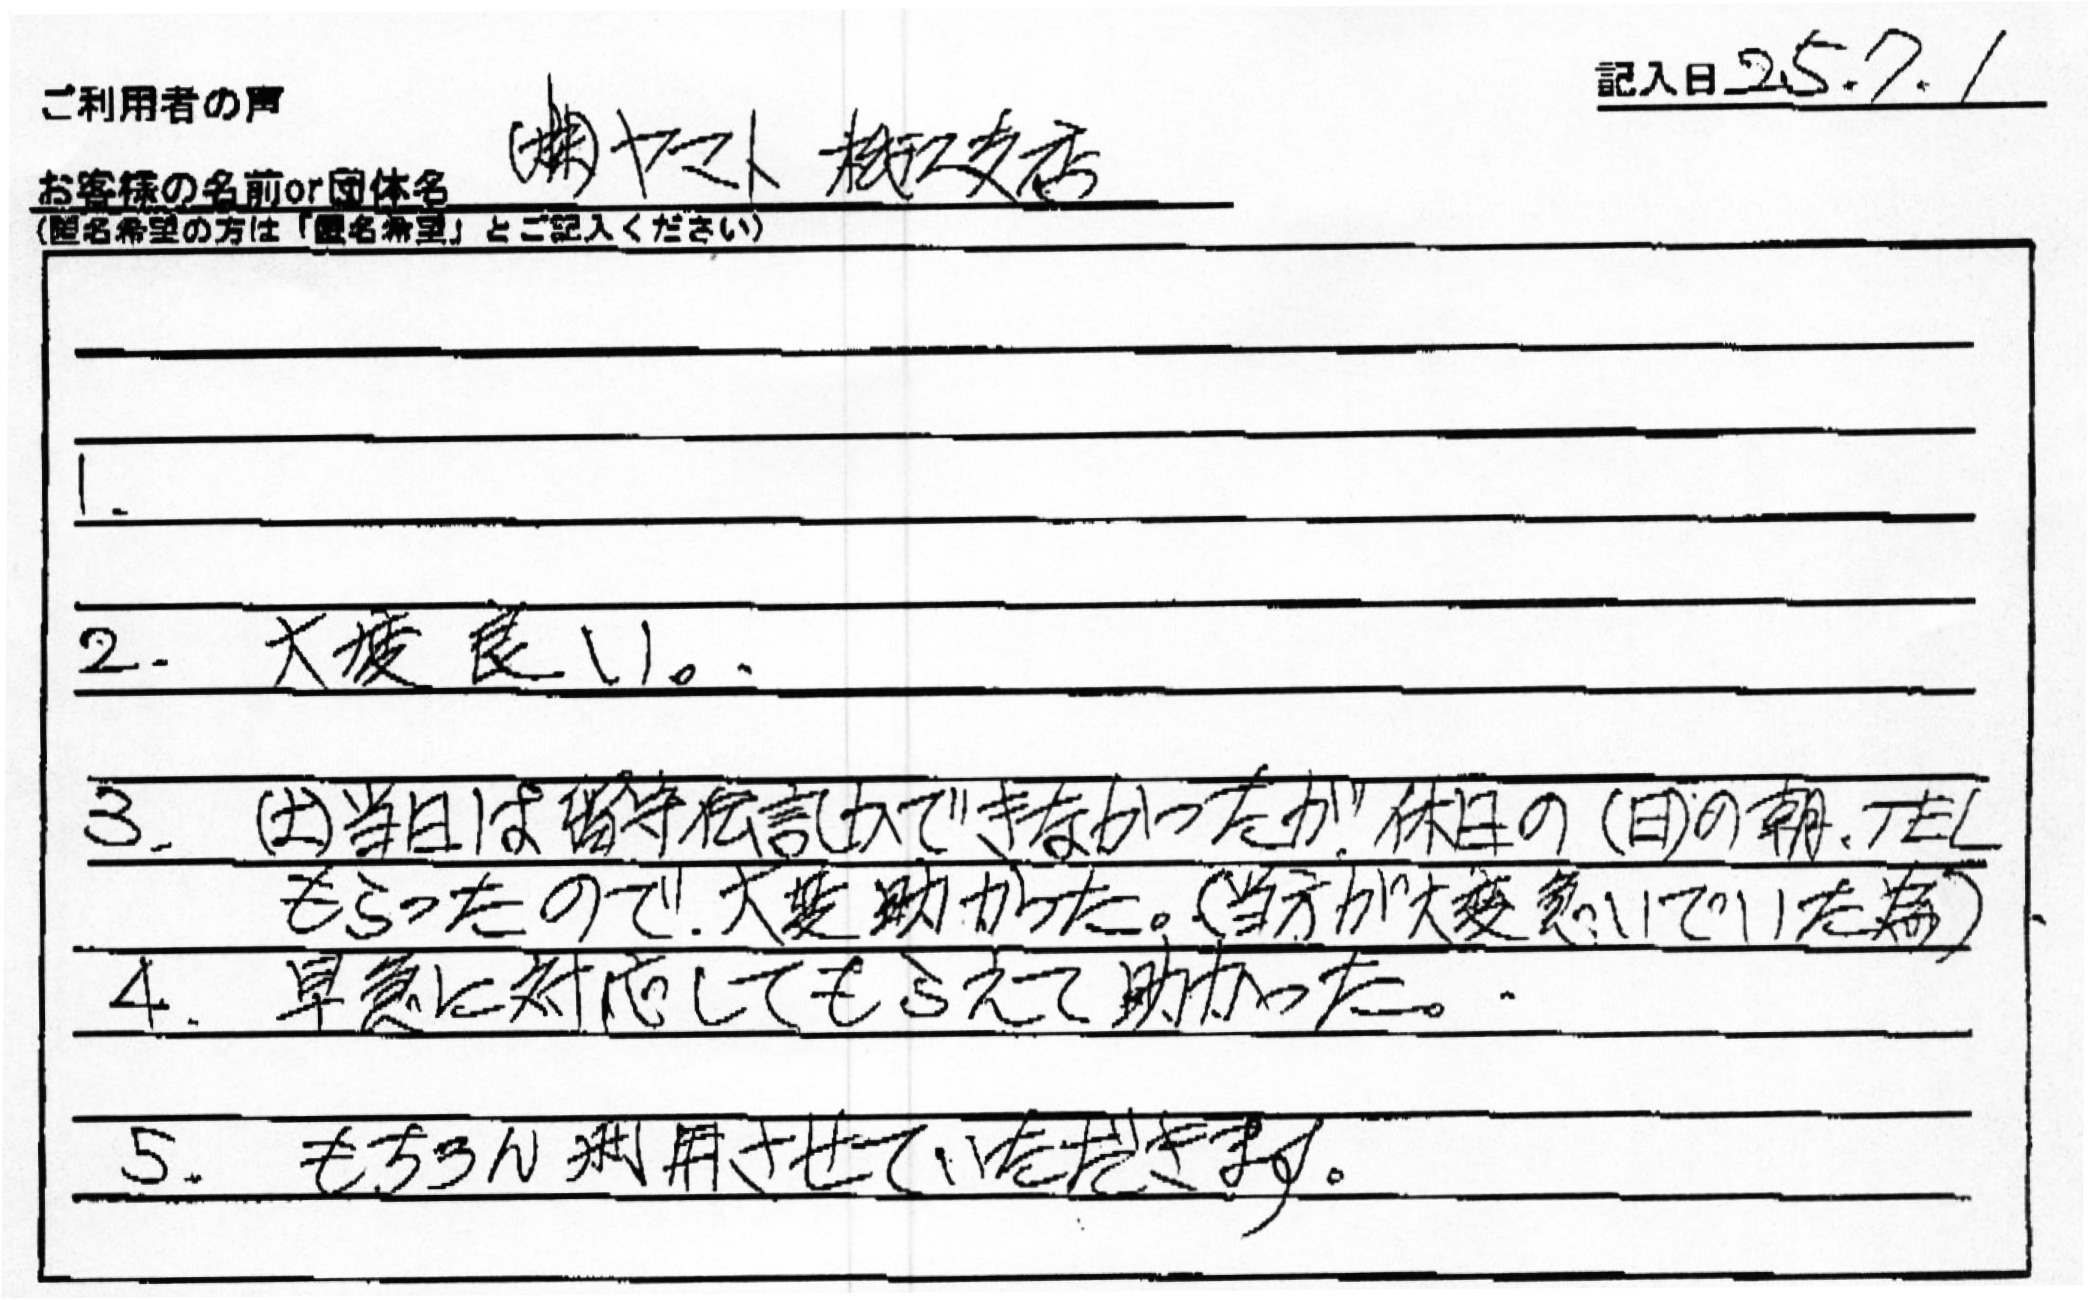 記入日 25.7.1
ご利用者の声
お客様の名前or団体名 (株)ヤマト 支店
(匿名希望の方は「匿名希望」とご記入ください)
1.
2. 大変良い。
3. (土)当日は留守伝言しかできなかったが、休日の(日)の朝、TEL
もらったので、大変助かった。(当方が大変急いでいた為)
4. 早急に対応してもらえて助かった。
5. もちろん利用させていただきます。